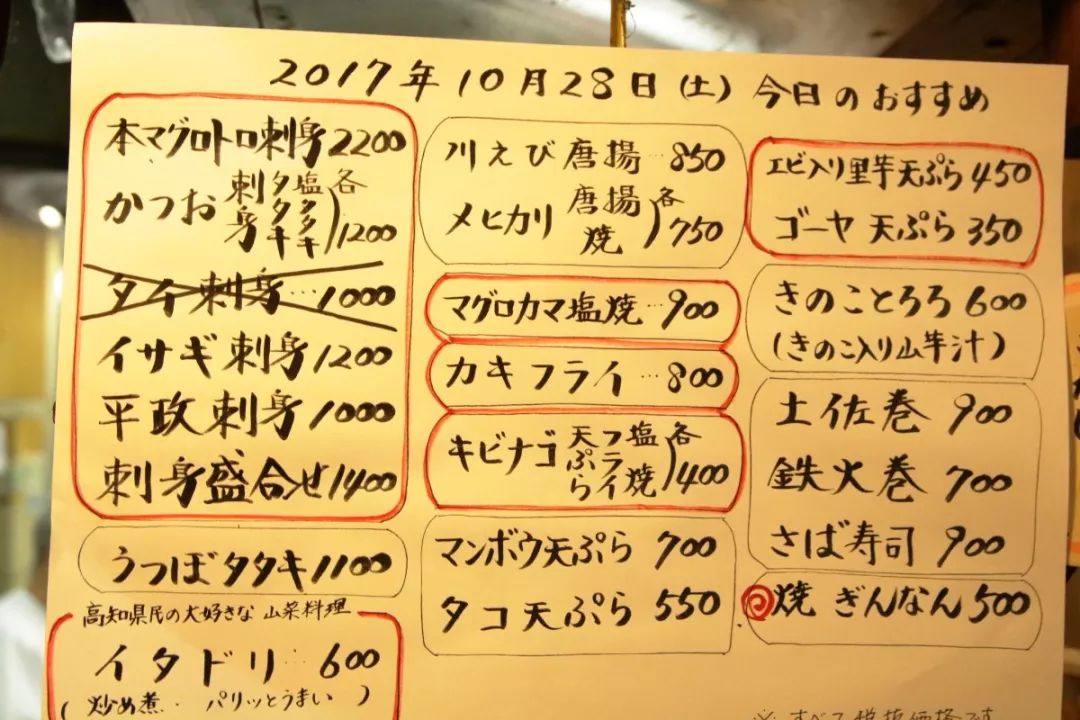 2017年10月28日(土) 今日のおすすめ
本マグロトロ刺身 2200
かつお 刺身 タタキ 塩タタキ 各1200
タイ刺身…1000
イサギ刺身 1200
平政刺身 1000
刺身盛合せ 1400
うつぼタタキ 1100
高知県民の大好きな 山菜料理
イタドリ…600
(炒め煮‥ パリッとうまい)
川えび唐揚…850
メヒカリ 唐揚 焼 各750
マグロカマ塩焼…900
カキフライ…800
キビナゴ 天ぷら フライ 塩焼 各400
マンボウ天ぷら 700
タコ天ぷら 550
エビ入り里芋天ぷら 450
ゴーヤ天ぷら 350
きのことろろ 600
(きのこ入り山芋汁)
土佐巻 900
鉄火巻 700
さば寿司 900
焼ぎんなん 500
※すべて税抜価格です